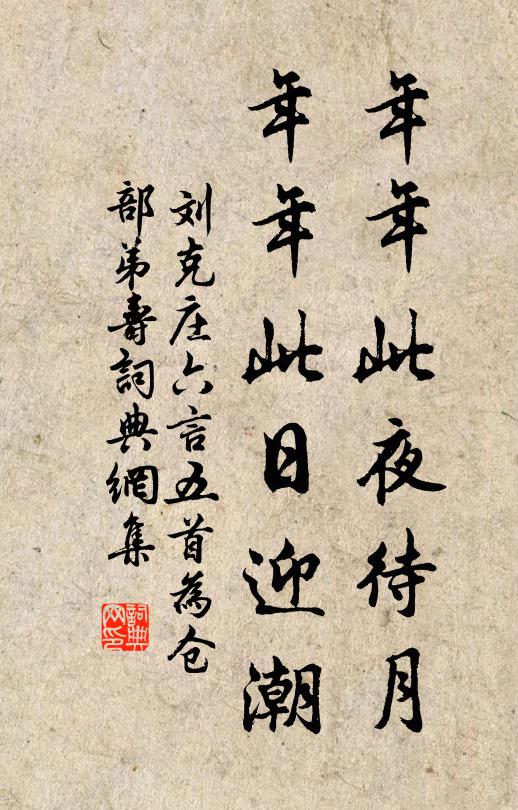 年年此夜待月
年年此日迎潮
刘克庄六言五首為仓
部弟壽詞典網集
詞典
网印